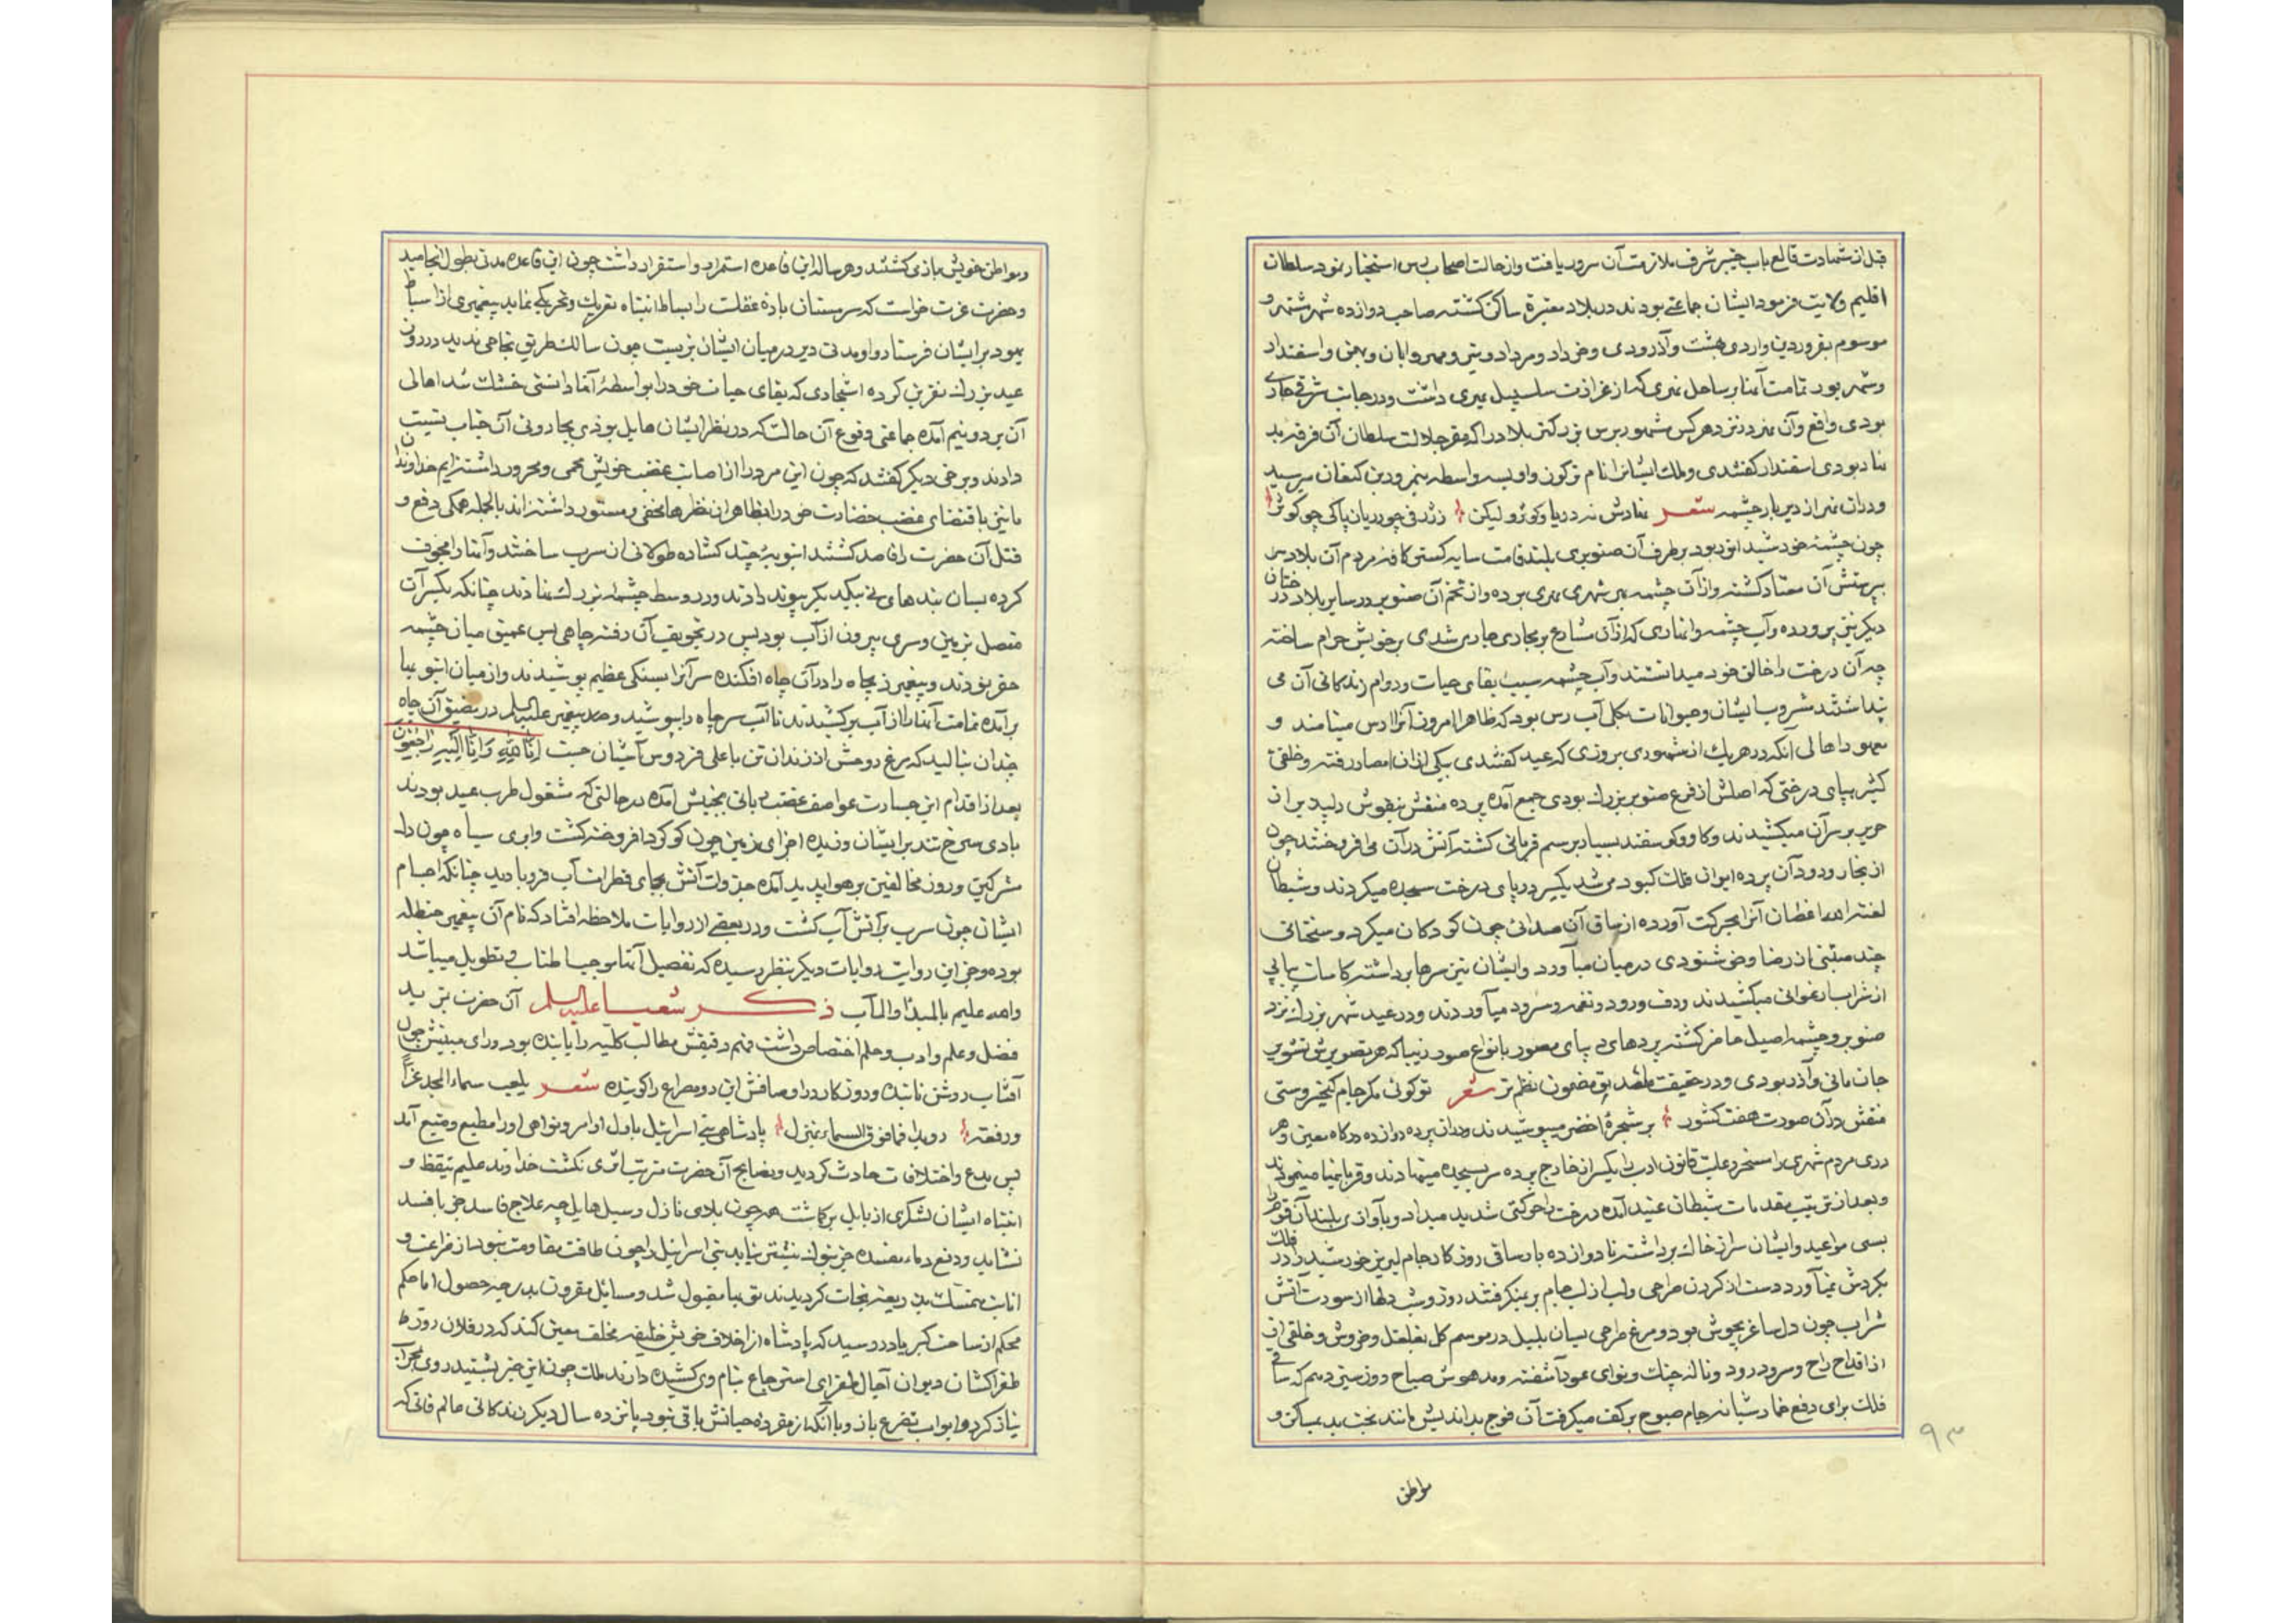 قبل از شهادت قالع باب خیبر شرف ملازمت آن سرور یافت و از حالت اصحاب رس استخبار نمود سلطان
اقلیم ولایت فرمود ایشان جماعتی بودند در بلاد معتبره ساکن کشته صاحب دوازده شهر شهره و
موسوم بفروردین و اردی بهشت و آذر و دی و خرداد و مرداد و تیر و مهر و ابان و بهمن و اسفندار
و شهر بور تمامت آنها بر ساحل نهری که از غرازت سلسبیل نهری داشت و در جانب شرقی جاری
بودی واقع و آن نهر در نزد هر کس مشهور برس بزرکتر بلاد را که مقر جلالت سلطان آن فرقه بد
نهاد بودی اسفندار کفتندی و ملک ایشانرا نام ترکون و او بسه واسطه بنمرود بن کنعان میرسید
و در ان نهر از دیر باز چشمه شعر نهادش نه دریا و کوثر و لیکن بژرفی چو دریا بپاکی چو کوثر
چون چشمه خورشید انور بود بر طرف آن صنوبری بلند قامت سایه کستر کافه مردم آن بلاد بر
پرستش آن معتاد کشته و از آن چشمه بهر شهری نهری برده و از تخم آن صنوبر در سایر بلاد درختان
دیکر نیز پرورده و آب چشمه و انهاری که از آن منشارع بر مجاری جاری شدی بر خویش حرام ساخته
چه آن درخت را خالق خود میدانستند و آب چشمه سبب بقای حیات و دوام زندکانی آن می
پنداشتند مشروب ایشان و حیوانات بکلی آب رس بود که ظاهرا امروز آنرا ارس مینامند و
معهود اهالی آنکه در هر یک از شهور دی بروزی که عید کفتندی بیکی از ان امصار رفته و خلقی
کثیر بپای درختی که اصلش از فرع صنوبر بزرک بودی جمع آمده پرده منقش بنقوش دلپذیر از
حریر بر سر آن میکشیدند و کاو و کوسفند بسیار برسم قربانی کشته آتش در آن می افروختند چون
از بخار و دود آن پرده ایوان فلک کبود می شد یکسر در پای درخت سجده میکردند و شیطان
لعنه الله اغصان آنرا بحرکت آورده از ساق آن صدائی چون کودکان میکرد و سخنانی
چند مبتنی از رضا و خوشنودی در میان میآورد و ایشان نیز سرها برداشته کاسات پیاپی
از شراب ارغوانی میکشیدند و دف و رود و نغمه و سرود میآوردند و در عید شهر بزرک نزد
صنوبر و چشمه اصیل حاضر کشته پردهای دیبای مصور بانواع صور زیبا که هر تصویرش تشویر
جان مانی و آذر بودی و در حقیقت مصدق مضمون نظم تر شعر تو کوئی مکر جام کیخسروستی
منقش در آن صورت هفت کشور بر شجره اخضر میپوشیدند و در ان پرده دوازده درکاه معین و هر
دری مردم شهری را مسخر و علیت کانون ادب را یکسر از خارج پرده سر بسجده مینهادند و قربانیها مینمودند
و بعد از ترتیب مقدمات شیطان عنید آمده درخت را حرکتی شدید میداد و بآوازی بلند آن قوم را
بسی مواعید و ایشان سر از خاک برداشته تا دوازده بار ساقی روزکار جام لبریز خورشید را در فلک
بکردش نمیآورد دست از کردن صراحی و لب از لب جام بر نمیکرفتند روز و شب دلها از سورت آتش
شراب چون دل ساغر بجوش بود و مرغ صراحی بسان بلبل در موسم کل بغلغل و خروش و خلقی از
از اقداح راح و سرود رود و ناله چنک و نوای عود آشفته و مدهوش صباح روز سیزدهم که ساقی
فلک برای دفع خمار شبانه جام صبوح بر کف میکرفت آن فوج بداندیش مانند بخت بد بمساکن و
مواطن
۹۳
و مواطن خویش بازی کشتند و هر ساله این قاعده استمرار و استقرار داشت چون این قاعده مدتی بطول انجامید
و حضرت عزت خواست که سرمستان باده غفلت را ببساط انتباه تقریک و تحریکی نماید پیغمبری از اسباط
یهود بر ایشان فرستاد و او مدتی دیر در میان ایشان بزیست چون سالک طریق نجاحی ندید در روز
عید بزرک نفرین کرده اشجاری که بقای حیات خود را بواسطه آنها دانستی خشک شد اهالی
آن بر دو نیم آمده جماعتی وقوع آن حالت که در نظر ایشان هایل بودی بجادوئی آن جناب نسبت
دادند و برخی دیکر کفتند که چون این مرد را از اصابت غضب خویش محمی و محروز داشته ایم خداوندان
ما نیز باقتضای غضب خضارت خود را بظاهر از نظرها مخفی و مستور داشته اند بالجمله همکی دفع و
قتل آن حضرت را قاصد کشتند انبوبه چند کشاده طولانی از سرب ساختند و آنها را مجوف
کرده بسان بندهای نی بیکدیکر پیوند دادند و در وسط چشمه بزرک نهادند چنانکه یکسر آن
متصل بزمین و سری بیرون از آب بود پس در تجویف آن رفته چاهی بس عمیق میان چشمه
حفر نمودند و پیغمبر ذیجاه را در آن چاه افکنده سر آنرا بسنکی عظیم پوشیدند و از میان انبوبها
بر آمده تمامت آنها را از آب بر کشیدند تا آب سر چاه را بپوشید و صد پیغمبر علیه السلم در مضیق آن چاه
چندان بنالید که مرغ روحش از زندان تن باعلی فردوس آشیان جست اِنّا لِلّهِ وَاِنّا اِلَیْهِ رٰاجِعُونَ
بعد از اقدام این جسارت عواصف غضب ربانی بجنبش آمده در حالتی که مشغول طرب عید بودند
بادی سرخ تند بر ایشان وزیده اجزای زمین چون کوکرد افروخته کشت و ابری سیاه چون دل
مشرکین و روز مخالفین بر هوا پدید آمده جذوات آتش بجای قطرات آب فرو بارید چنانکه اجسام
ایشان چون سرب بر آتش آب کشت و در بعضی از روایات ملاحظه افتاد که نام آن پیغمبر حنظله
بوده و جز این روایت روایات دیکر بنظر رسیده که تفصیل آنها موجب اطناب و تطویل میباشد
والله علیم بالمبدا والمآب ذکر شعیا علیه السلم آن حضرت بمزید
فضل و علم و ادب و حلم اختصاص داشت فهم دقیقش مطالب کلیه را یابنده بود و رای مبینش چون
آفتاب روشن تابنده و روزکار در اوصافش این دو مصراع را کوینده شعر یلعب سماء المجد عزا
و رفعة رویدا فما فوق السماء بمنزل پادشاهی بنی اسرائیل باول اوامر و نواهی او را مطیع و متبع آمد
پس بدع و اختلافات حادث کردید و نصایح آن حضرت مترتب اثری نکشت خداوند علیم تیقظ و
انتباه ایشان لشکری از بابل برکماشت همه چون بلای نازل و سیل هایل چه علاج فاسد جز بافسد
نشاید و دفع دماء مفسده جز بنوک نیشتر نیاید بنی اسرائیل را چون طاقت مقاومت نبود از ضراعت و
انابت متمسک بدین ریعه نجات کردیدند توبها مقبول شد و مسایل مقرون بدرجه حصول اما حکم
محکم از ساحت کبریا در رسید که پادشاه از اخلاف خویش خلیفه مخلف معین کند که در فلان روز
طغراکشان دیوان آجال طغرای استرجاع بنام وی کشیده دارند ملک چون این خبر بشنید روی بمحراب
نیاز کرد و ابواب تضرع باز و با آنکه از مقرره حیاتش باقی نبود پانزده سال دیکر زندکانی عالم فانی که